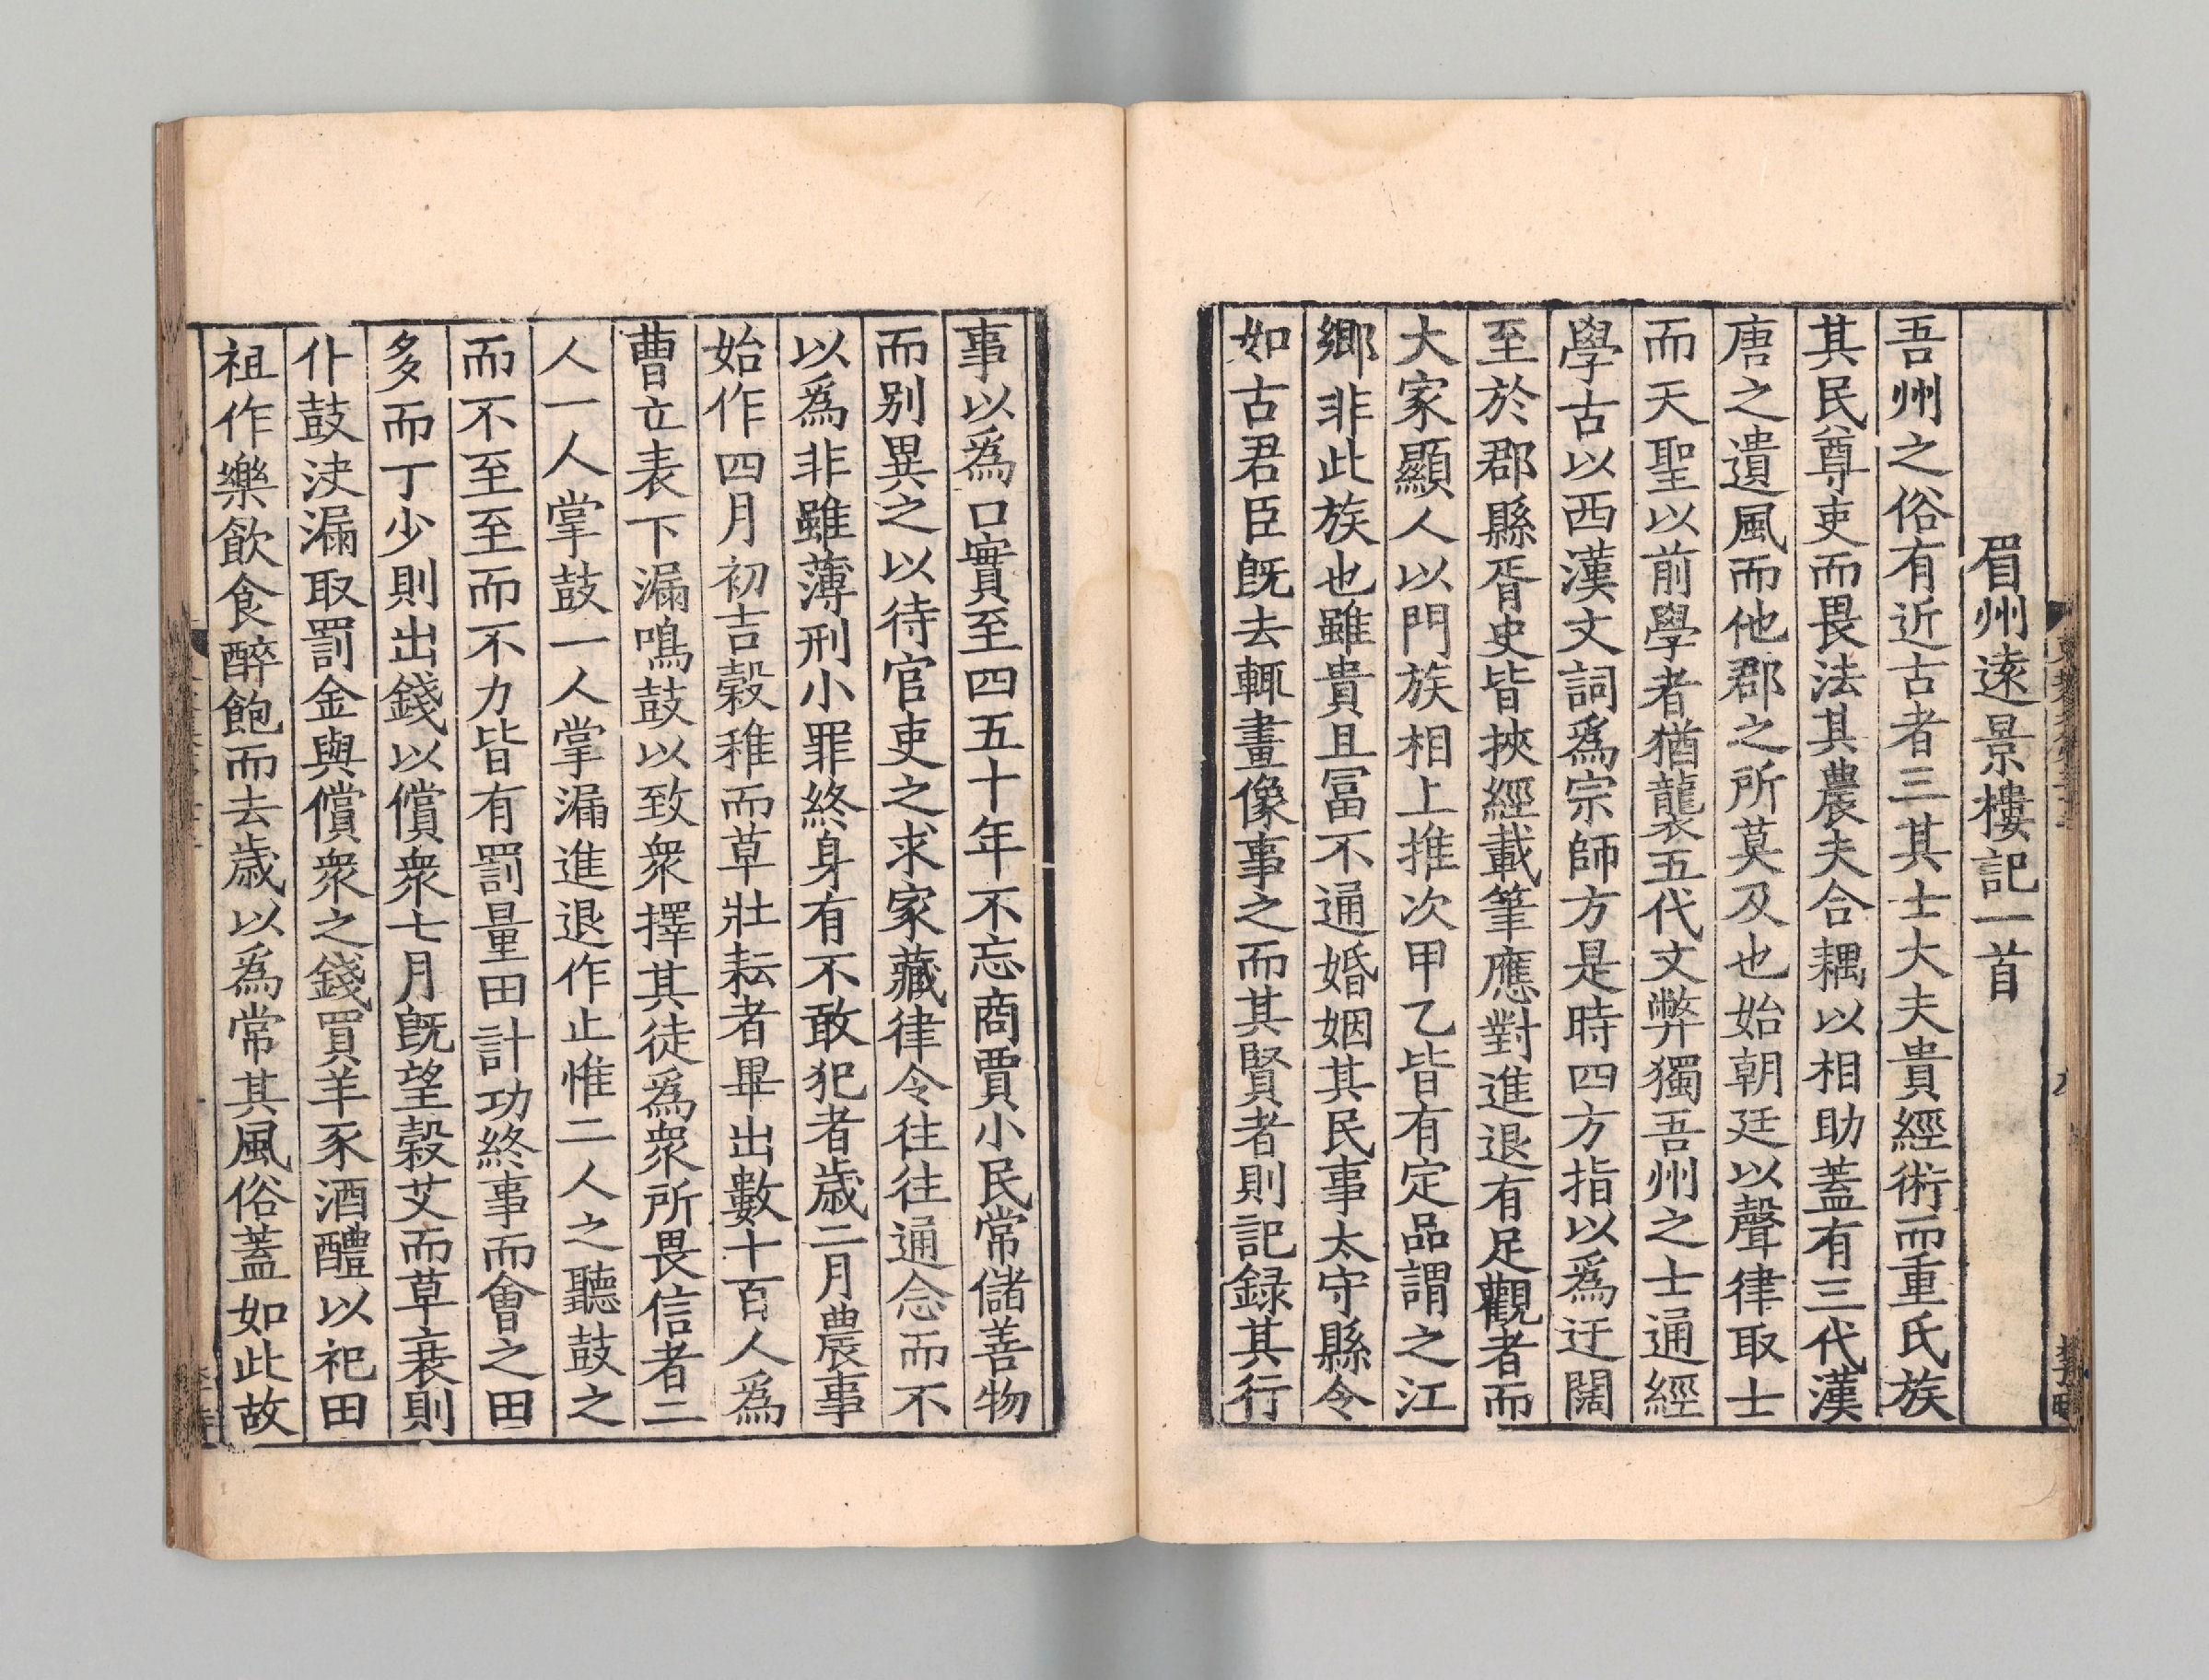 眉州遠景樓記一首
吾州之俗有近古者三其士大夫貴經術而重氏族
其民尊吏而畏法其農夫合耦以相助蓋有三代漢
唐之遺風而他郡之所莫及也始朝廷以聲律取士
而天聖以前學者猶襲五代文弊獨吾州之士通經
學古以西漢文詞爲宗師方是時四方指以爲迂闊
至於郡縣胥史皆挾經載筆應對進退有足觀者而
大家顯人以門族相上推次甲乙皆有定品謂之江
鄉非此族也雖貴且冨不通婚姻其民事太守縣令
如古君臣旣去輒畫像事之而其賢者則記録其行
事以爲口實至四五十年不忘商賈小民常儲善物
而别異之以待官吏之求家藏律令往往通念而不
以爲非雖薄刑小罪終身有不敢犯者歳二月農事
始作四月初吉穀稚而草壯耘者畢出數十百人爲
曹立表下漏鳴鼓以致衆擇其徒爲衆所畏信者二
人一人掌鼓一人掌漏進退作止惟二人之聽鼓之
而不至至而不力皆有罰量田計功終事而會之田
多而丁少則出錢以償衆七月旣望穀艾而草衰則
仆鼓決漏取罰金與償衆之錢買羊豕酒醴以祀田
祖作樂飲食醉飽而去歳以爲常其風俗蓋如此故